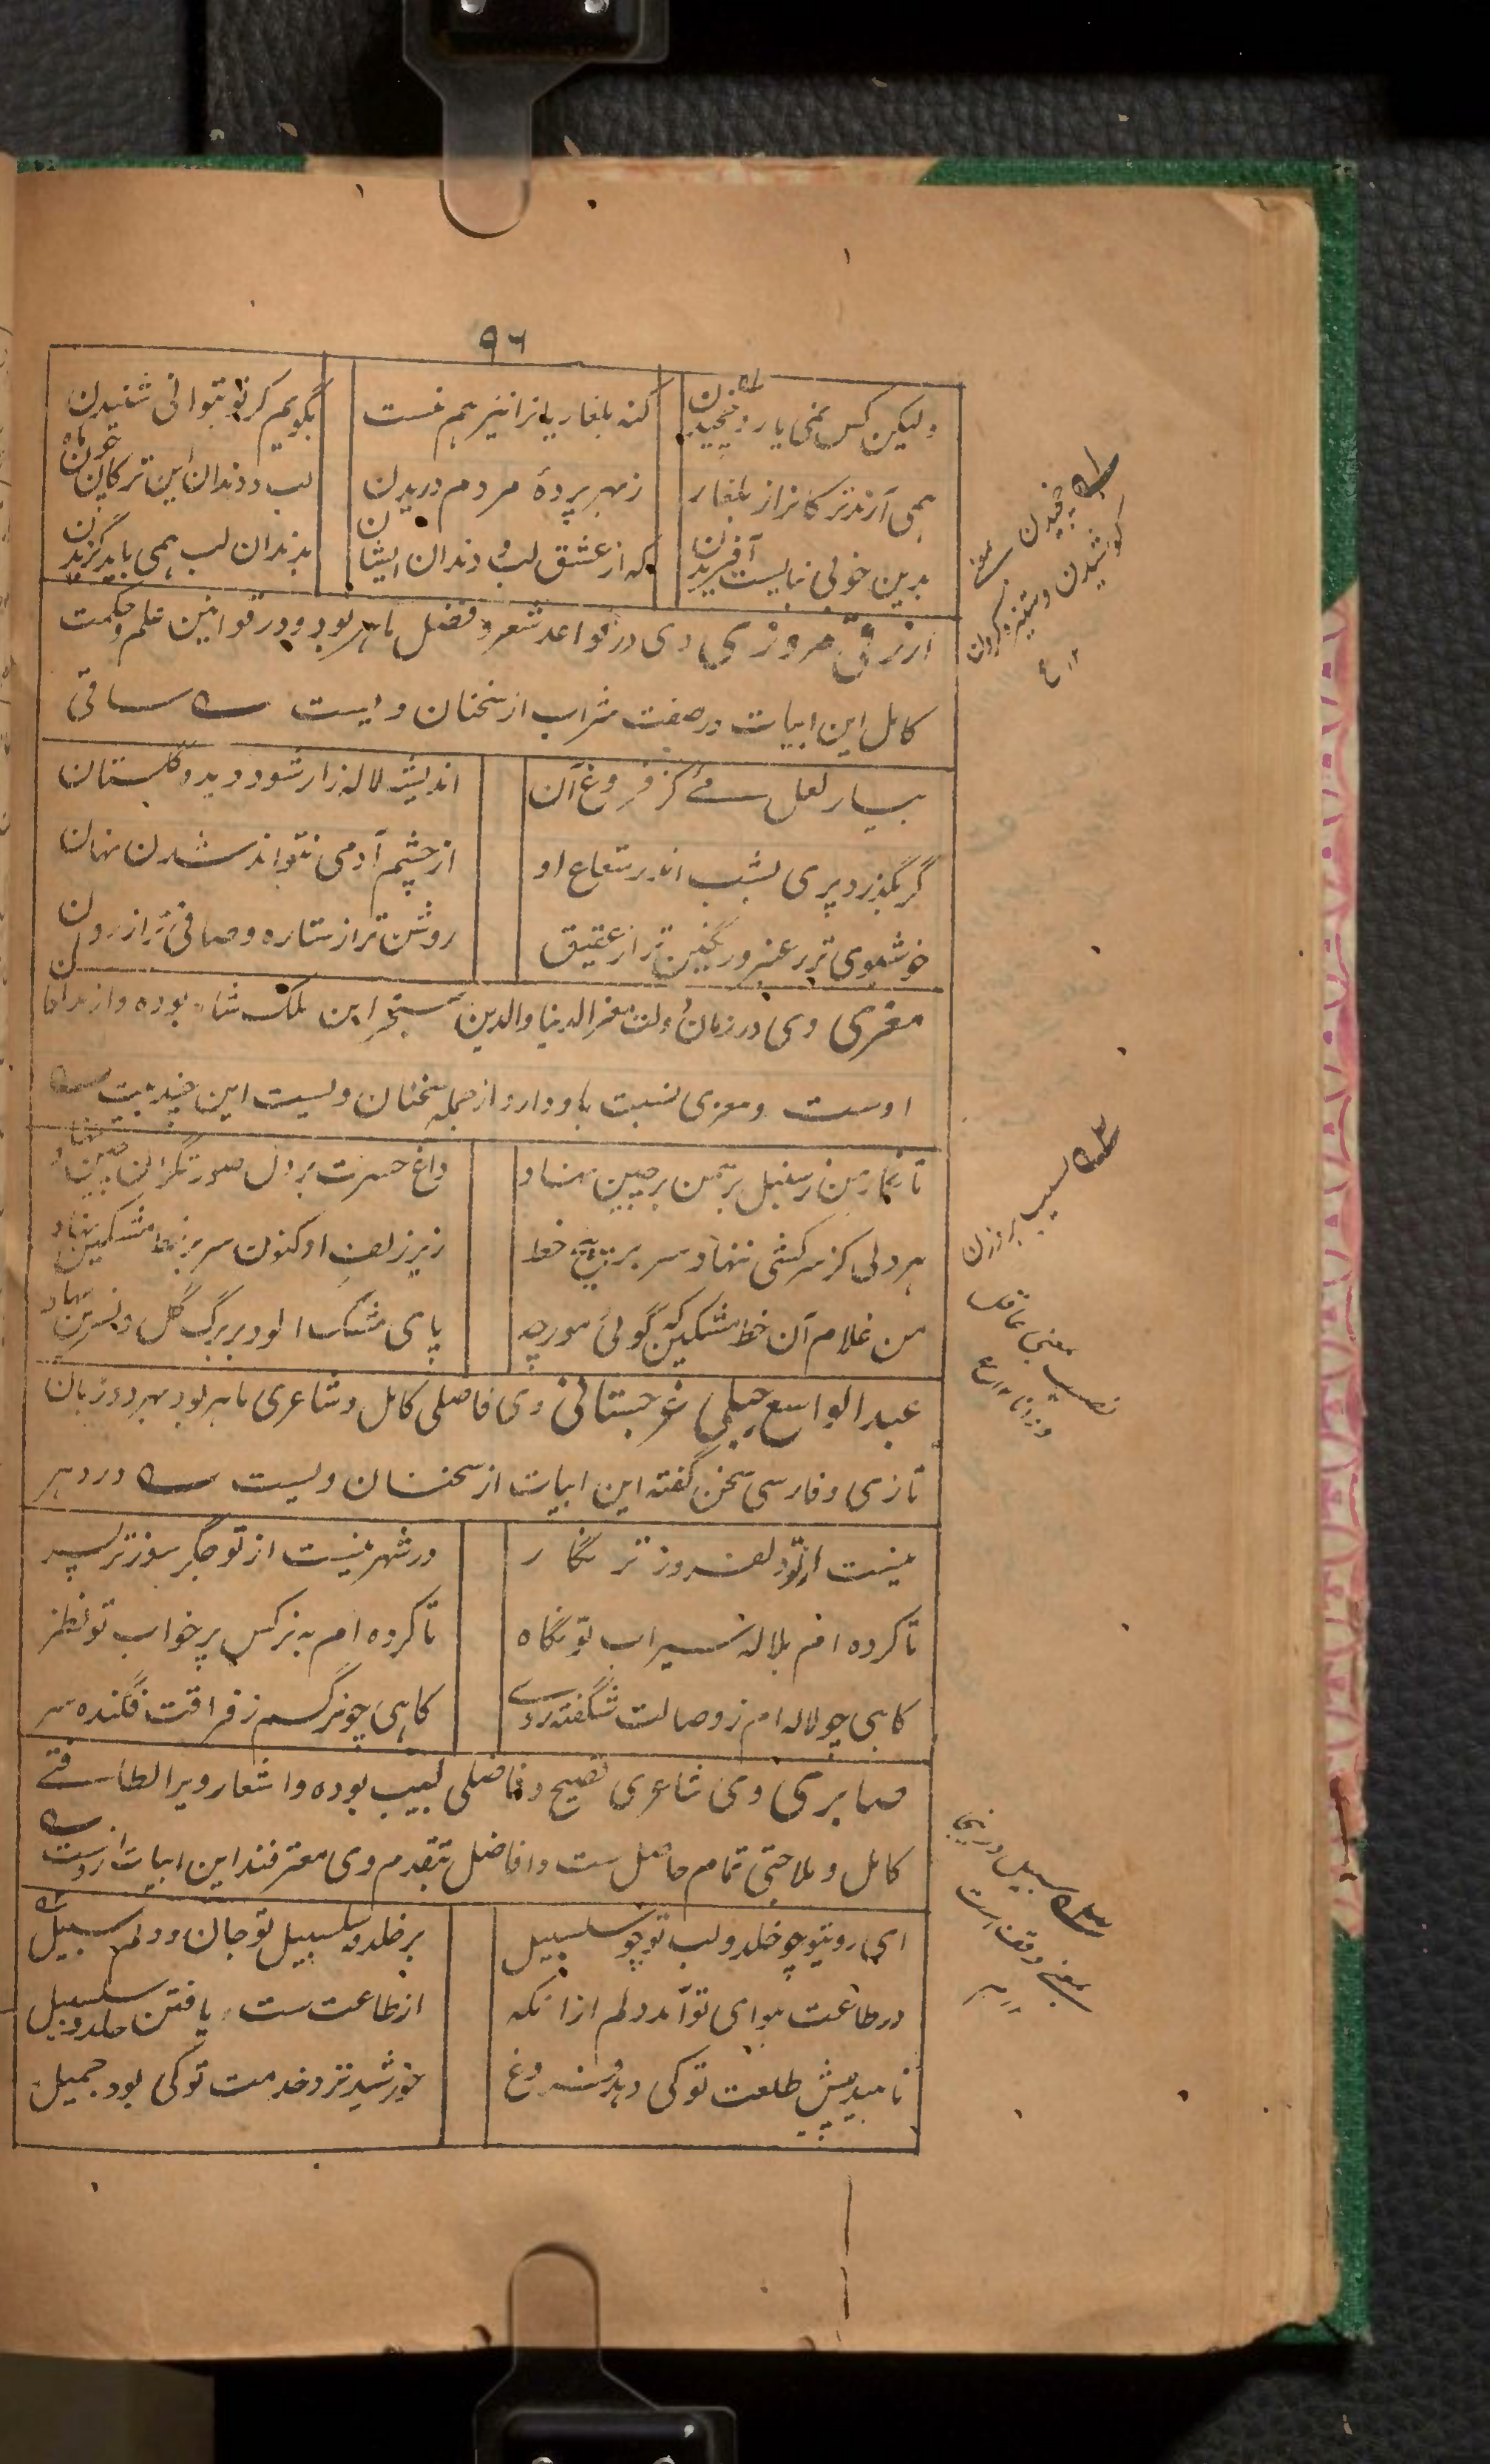 ۹۶
ولیکن کس نمی یارد چخیدن گنه بلغاریانرا نیز هم نیست بگویم گر تو بتوانی شنیدن
همی آرند ترکانرا ز بلغار ز بهر پردهٔ مردم دریدن لب و دندان این ترکان چون ماه
بدین خوبی نبایست آفریدن که از عشق لب و دندان ایشان بدندان لب همی باید گزیدن
ازرقی مروزی وی در قواعد شعر و فضل ماهر بود و در قوانین علم و حکمت
کامل این ابیات در صفت شراب از سخنان ویست ساقی
بیار لعل مئے کز فروغ آن اندیشه لاله زار شود دیده گلستان
گر بگذرد پری بشب اندر شعاع او از چشم آدمی نتواند شدن نهان
خوشبوی تر ز عنبر و رنگین تر از عقیق روشن تر از ستاره و صافی تر از روان
معزی وی در زمان دولت معز الدنیا والدین سنجر ابن ملک شاه بوده و از مداحان
اوست و معزی نسبت باو دارد و از جمله سخنان ویست این چند بیت
تا نگار من ز سنبل بر سمن پرچین نهاد داغ حسرت بر دل صورتگران چین نهاد
هر دلی کز سرکشی ننهاد سر بر هیچ خط زیر زلف او کنون سر بر خط مشکین نهاد
من غلام آن خط مشکین که گوئی مورچه پای مشک آلود بر برگ گل و نسرین نهاد
عبد الواسع جبلی غرجستانی وی فاضلی کامل و شاعری ماهر بود بهر دو زبان
تازی و فارسی سخن گفته این ابیات از سخنان ویست در دهر
نیست از تو دلفروز تر نگار در شهر نیست از تو جگر سوز تر پسر
تا کرده ام بلاله سیراب تو نگاه تا کرده ام به نرگس پر خواب تو نظر
گاهی چو لاله ام ز وصالت شگفته روے گاهی چو نرگسم ز فراقت فگنده سر
صابری وی شاعری فصیح و فاضلی لبیب بوده و اشعار ویرا لطافتے
کامل و ملاحتی تمام حاصل ست و افاضل بتقدم وی معترفند این ابیات ازوست
ای روی تو چو خلد و لب تو چو سلسبیل بر خلد و سلسبیل تو جان و دلم سبیل
در طاعت هوای تو آمد دلم ازانکه از طاعت ست یافتن خلد و سلسبیل
ناهید پیش طلعت تو کی دهد فروغ خورشید نزد خدمت تو کی بود جمیل
چخیدن بمعنی
کوشیدن و ستیزه کردن
۱۲ ع
لبیب بر وزن
نصیب بمعنی عاقل
و دانا ۱۲ ع
سبیل
بمعنی وقف ست